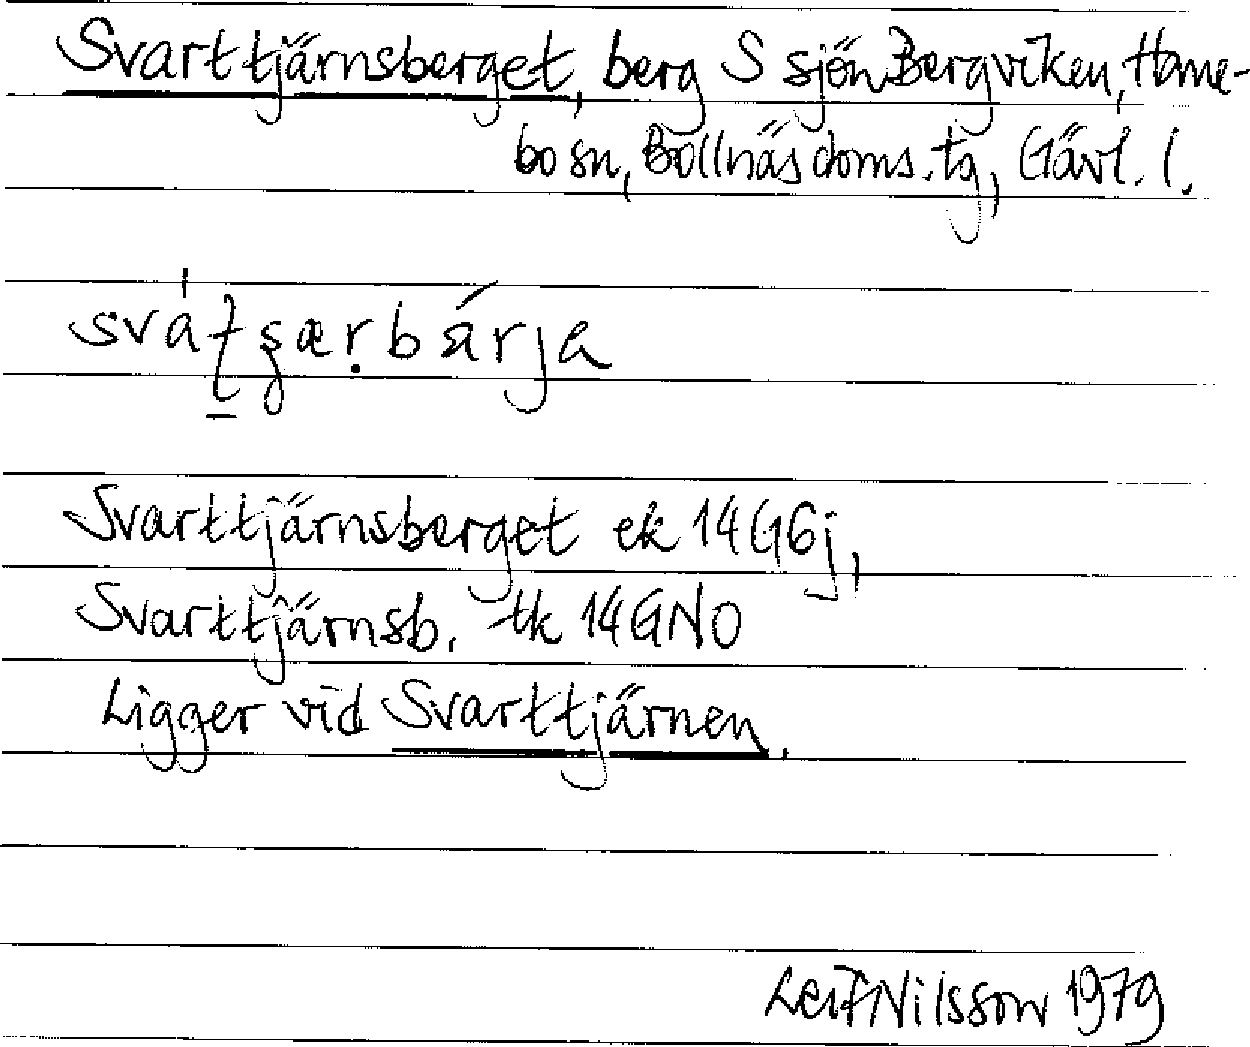 Svarttjärnsberget, berg S sjön Bergviken, Hane-
bo sn, Bollnäs doms. tg, Gävl. l.
Svarttjärnsberget ek 14G6j,
Svarttjärnsb. tk 14GNO
Ligger vid Svarttjärnen.
Leif Nilsson 1979